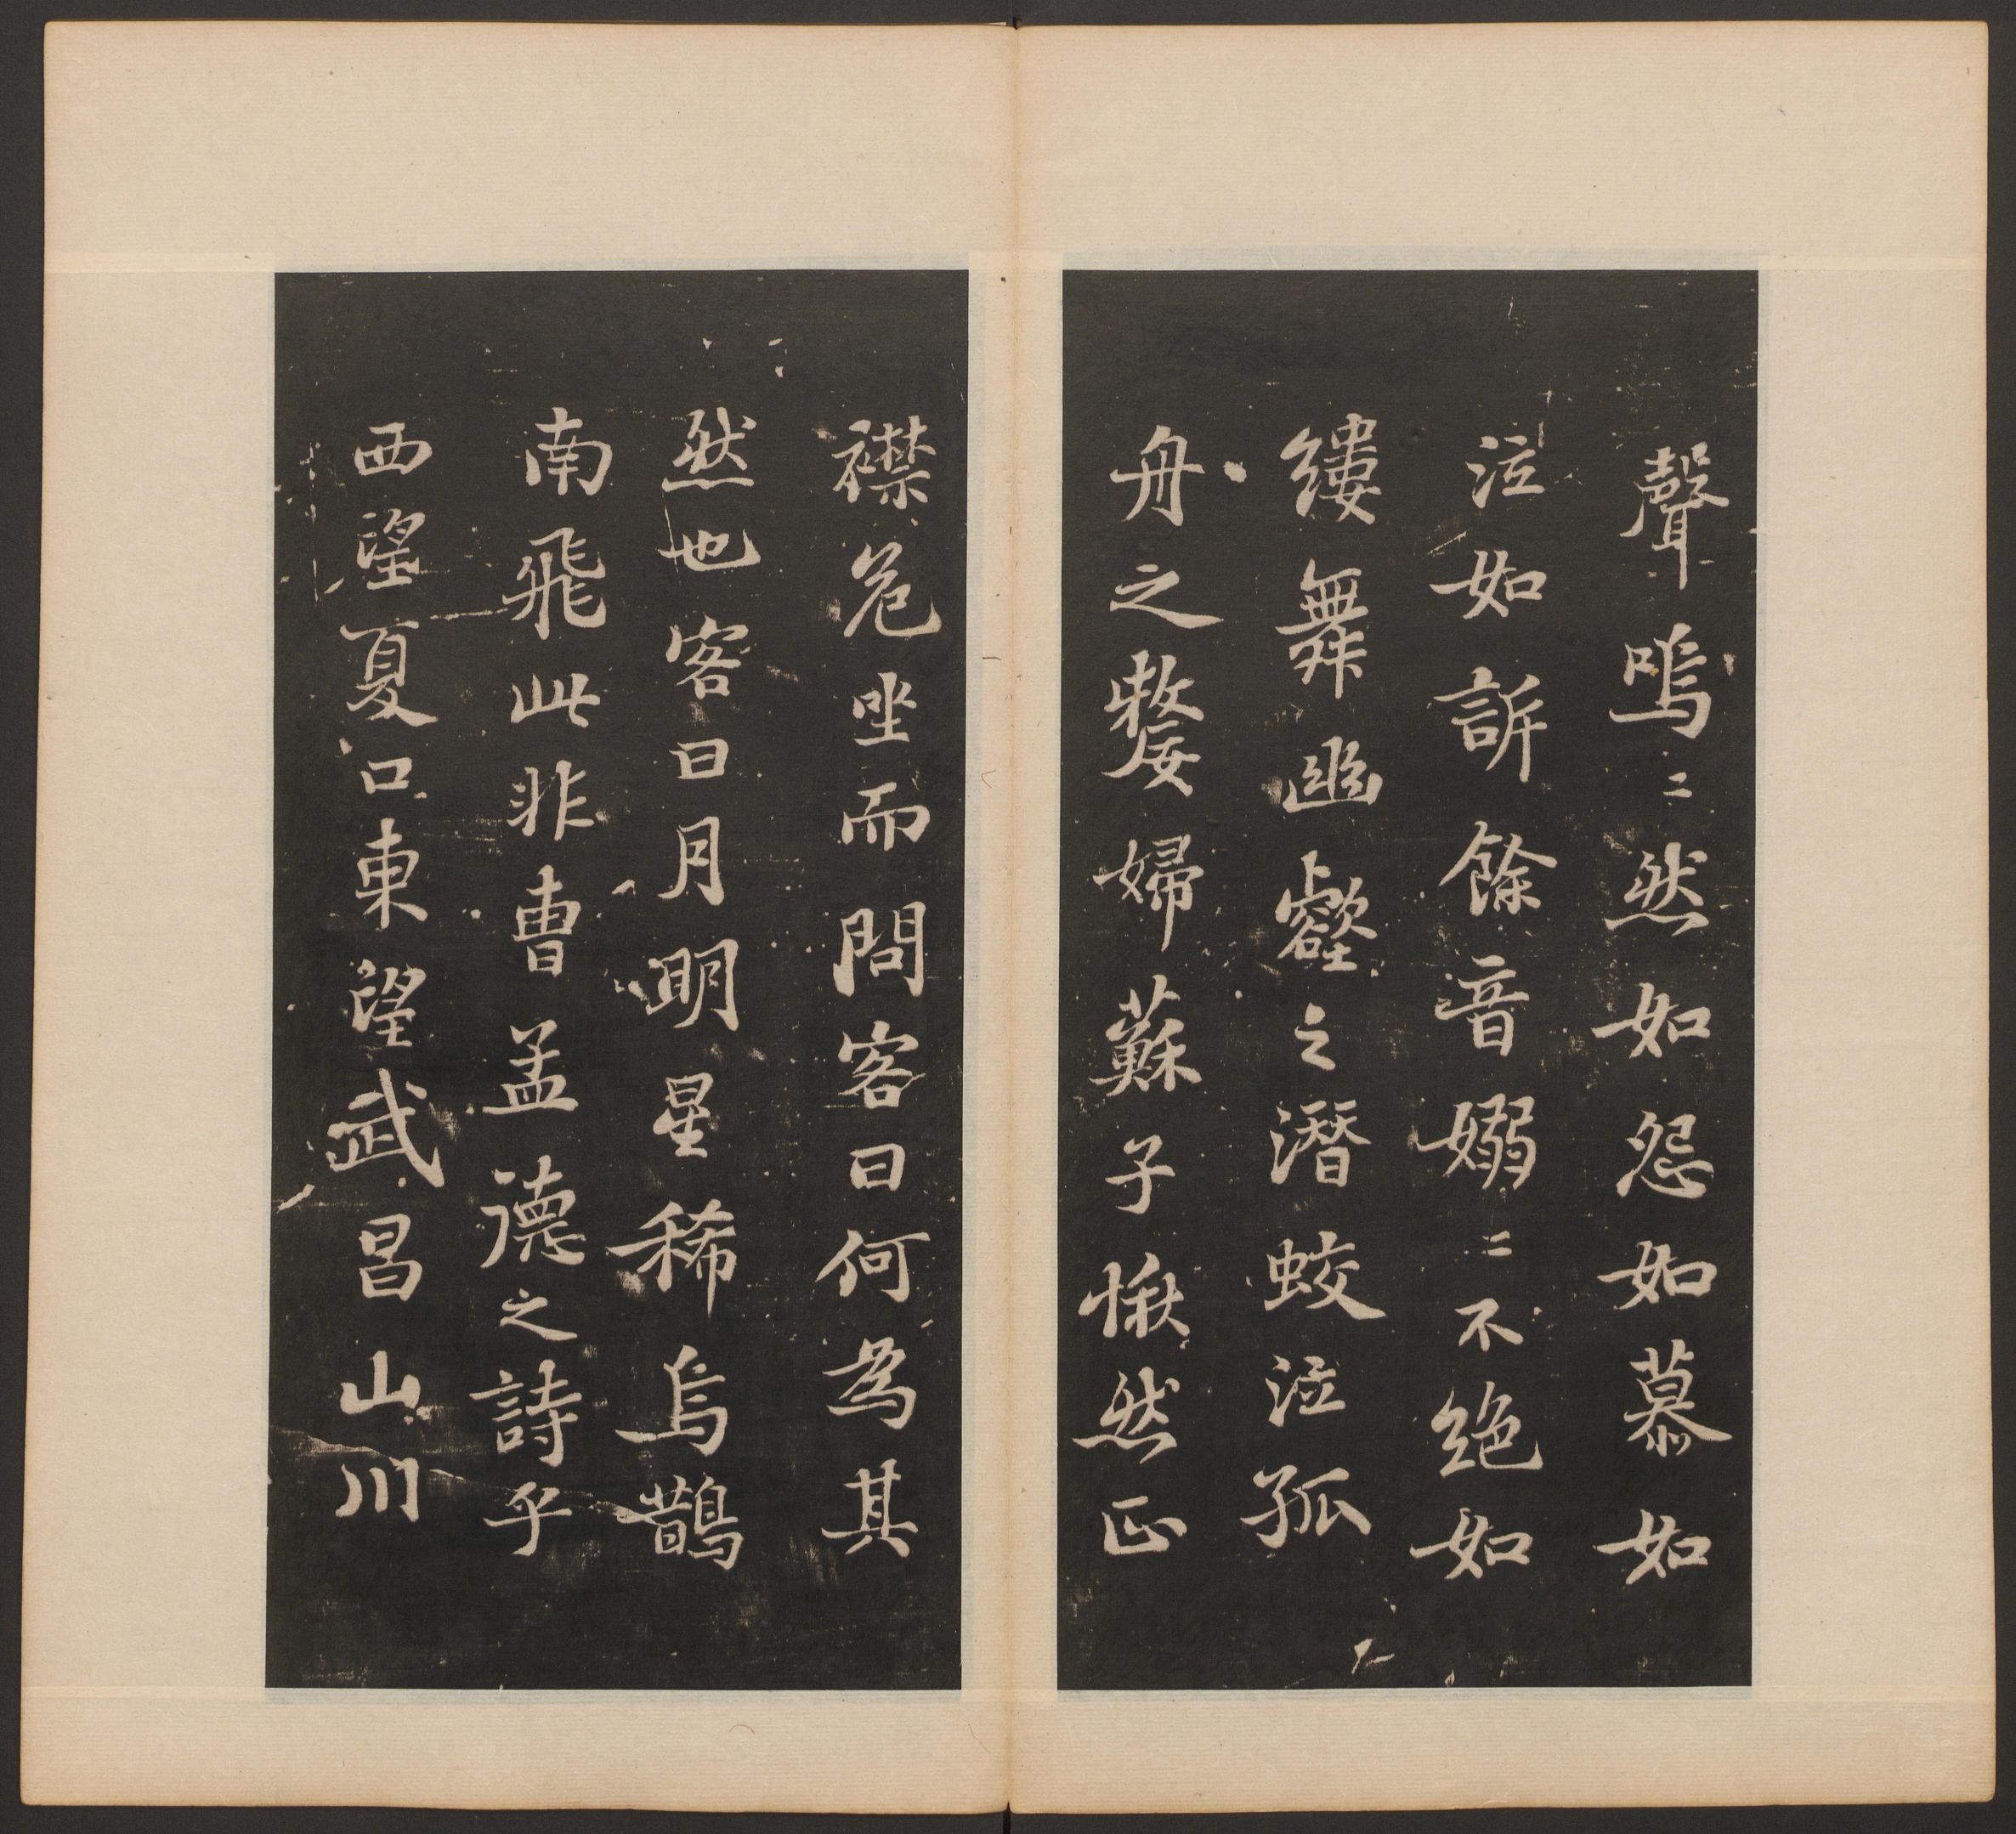 聲嗚〻然如怨如慕如
泣如訴餘音嫋〻不絶如
縷舞幽壑之潛蛟泣孤
舟之嫠婦蘇子愀然正
襟危坐而問客曰何為其
然也客曰月明星稀烏鵲
南飛此非曹孟德之詩乎
西望夏口東望武昌山川